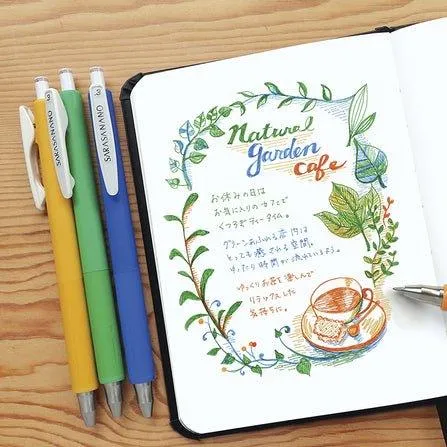 SARASANANO
SARASANANO
0.3
Natural
garden
cafe
お休みの日は
お気に入りのカフェで
くつろぎティータイム。
グリーンあふれる店内は
とっても癒される空間。
ゆったり時間が流れているよう。
ゆっくりお茶を楽しんで
リラックスした
気持ちに。